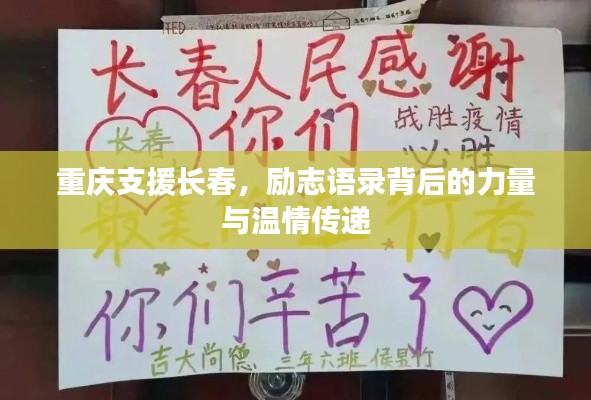 长春人民感谢
你们
战胜疫情
必胜
长春
重庆支援长春，励志语录背后的力量
与温情传递
最美
行者
你们辛苦了
吉大尚德 三年六班 侯昱竹